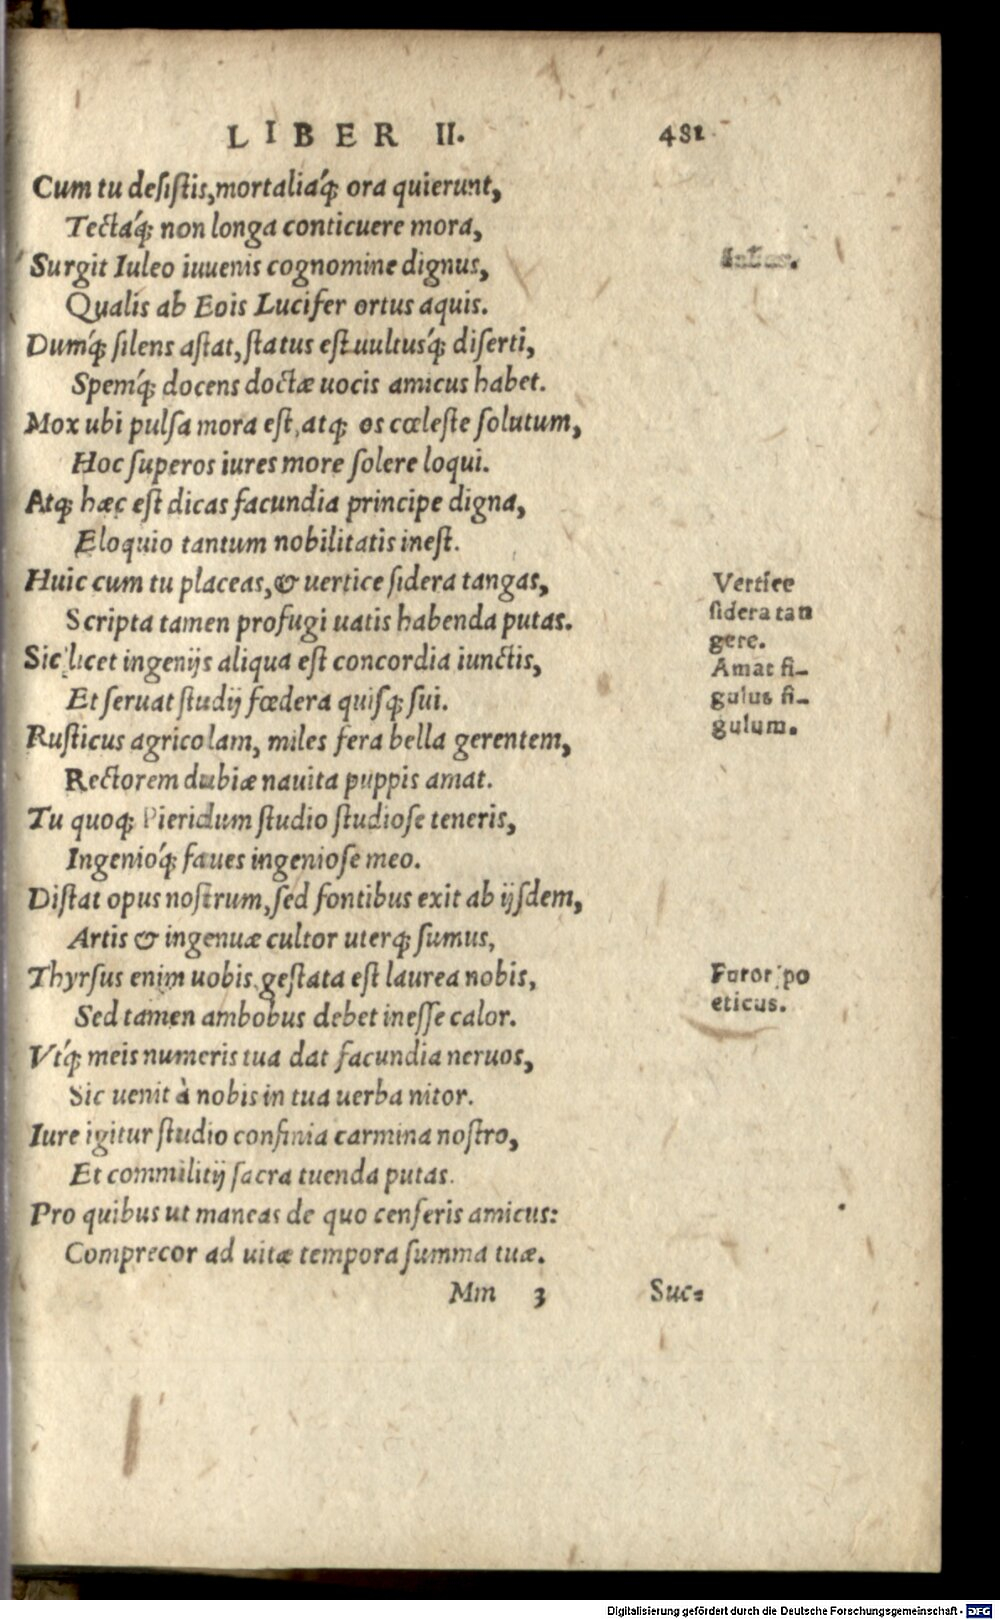 LIBER II. 481
Cum tu desiſtis, mortaliaq́; ora quierunt,
Tectaq́; non longa conticuere mora,
Surgit Iuleo iuuenis cognomine dignus,
Qualis ab Eois Lucifer ortus aquis.
Dumq́; ſilens aſtat, ſtatus eſt uultusq́; diſerti,
Spemq́; docens doctæ uocis amicus habet.
Mox ubi pulſa mora eſt, atq; os cœleſte ſolutum,
Hoc ſuperos iures more ſolere loqui.
Atq; hæc eſt dicas facundia principe digna,
Eloquio tantum nobilitatis ineſt.
Huic cum tu placeas, & uertice ſidera tangas,
Vertice
Scripta tamen profugi uatis habenda putas.
ſidera tan
gere.
Sic licet ingenijs aliqua eſt concordia iunctis,
Amat fi-
Et ſeruat ſtudij fœdera quiſq; ſui.
gulus fi-
gulum.
Ruſticus agricolam, miles fera bella gerentem,
Rectorem dubiæ nauita puppis amat.
Tu quoq; Pieridum ſtudio ſtudioſe teneris,
Ingenioq́; faues ingenioſe meo.
Diſtat opus noſtrum, ſed fontibus exit ab ijſdem,
Artis & ingenuæ cultor uterq; ſumus,
Thyrſus enim uobis, geſtata eſt laurea nobis,
Furor po
eticus.
Sed tamen ambobus debet ineſſe calor.
Vtq́; meis numeris tua dat facundia neruos,
Sic uenit à nobis in tua uerba nitor.
Iure igitur ſtudio confinia carmina noſtro,
Et commilitij ſacra tuenda putas.
Pro quibus ut maneas de quo cenſeris amicus:
Comprecor ad uitæ tempora ſumma tuæ.
Mm 3 Suc-
Digitalisierung gefördert durch die Deutsche Forschungsgemeinschaft - DFG